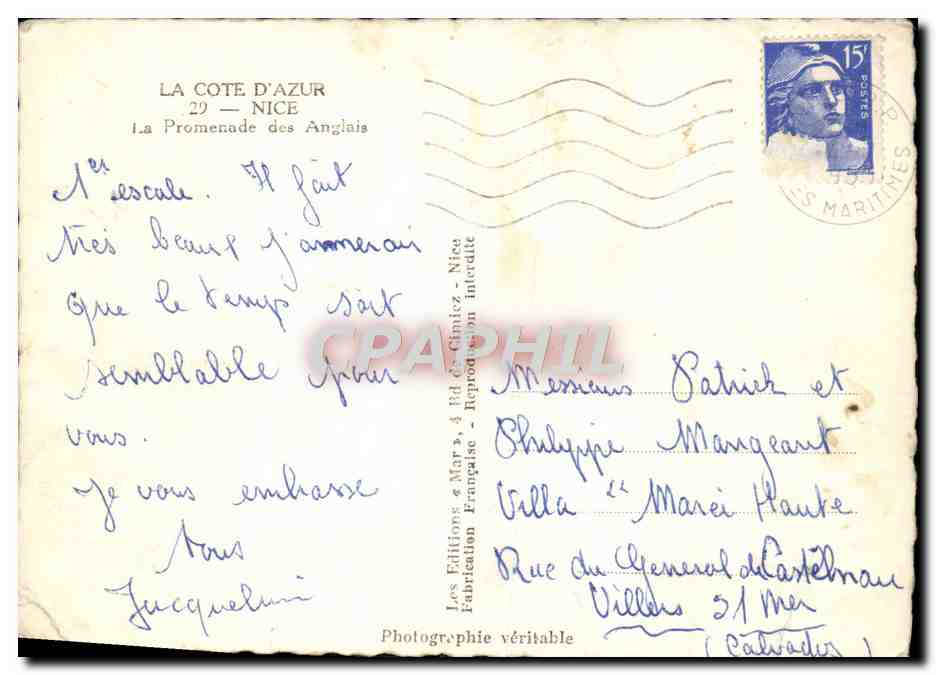 LA COTE D'AZUR
29 — NICE
La Promenade des Anglais
1er escale. Il fait
très beau j'aimerai
que le temps soit
semblable pour
vous.
Je vous embrasse
tous
Jacqueline
Les Editions « Mar », 4 Bd de Cimiez - Nice
Fabrication Française - Reproduction interdite
15F
POSTES
ES MARITIMES
CPAPHIL
Messieurs Patrick et
Philippe Mangeant
Villa "Marei Haute
Rue du General de Castelnau
Villers s/ Mer
(Calvados)
Photographie véritable